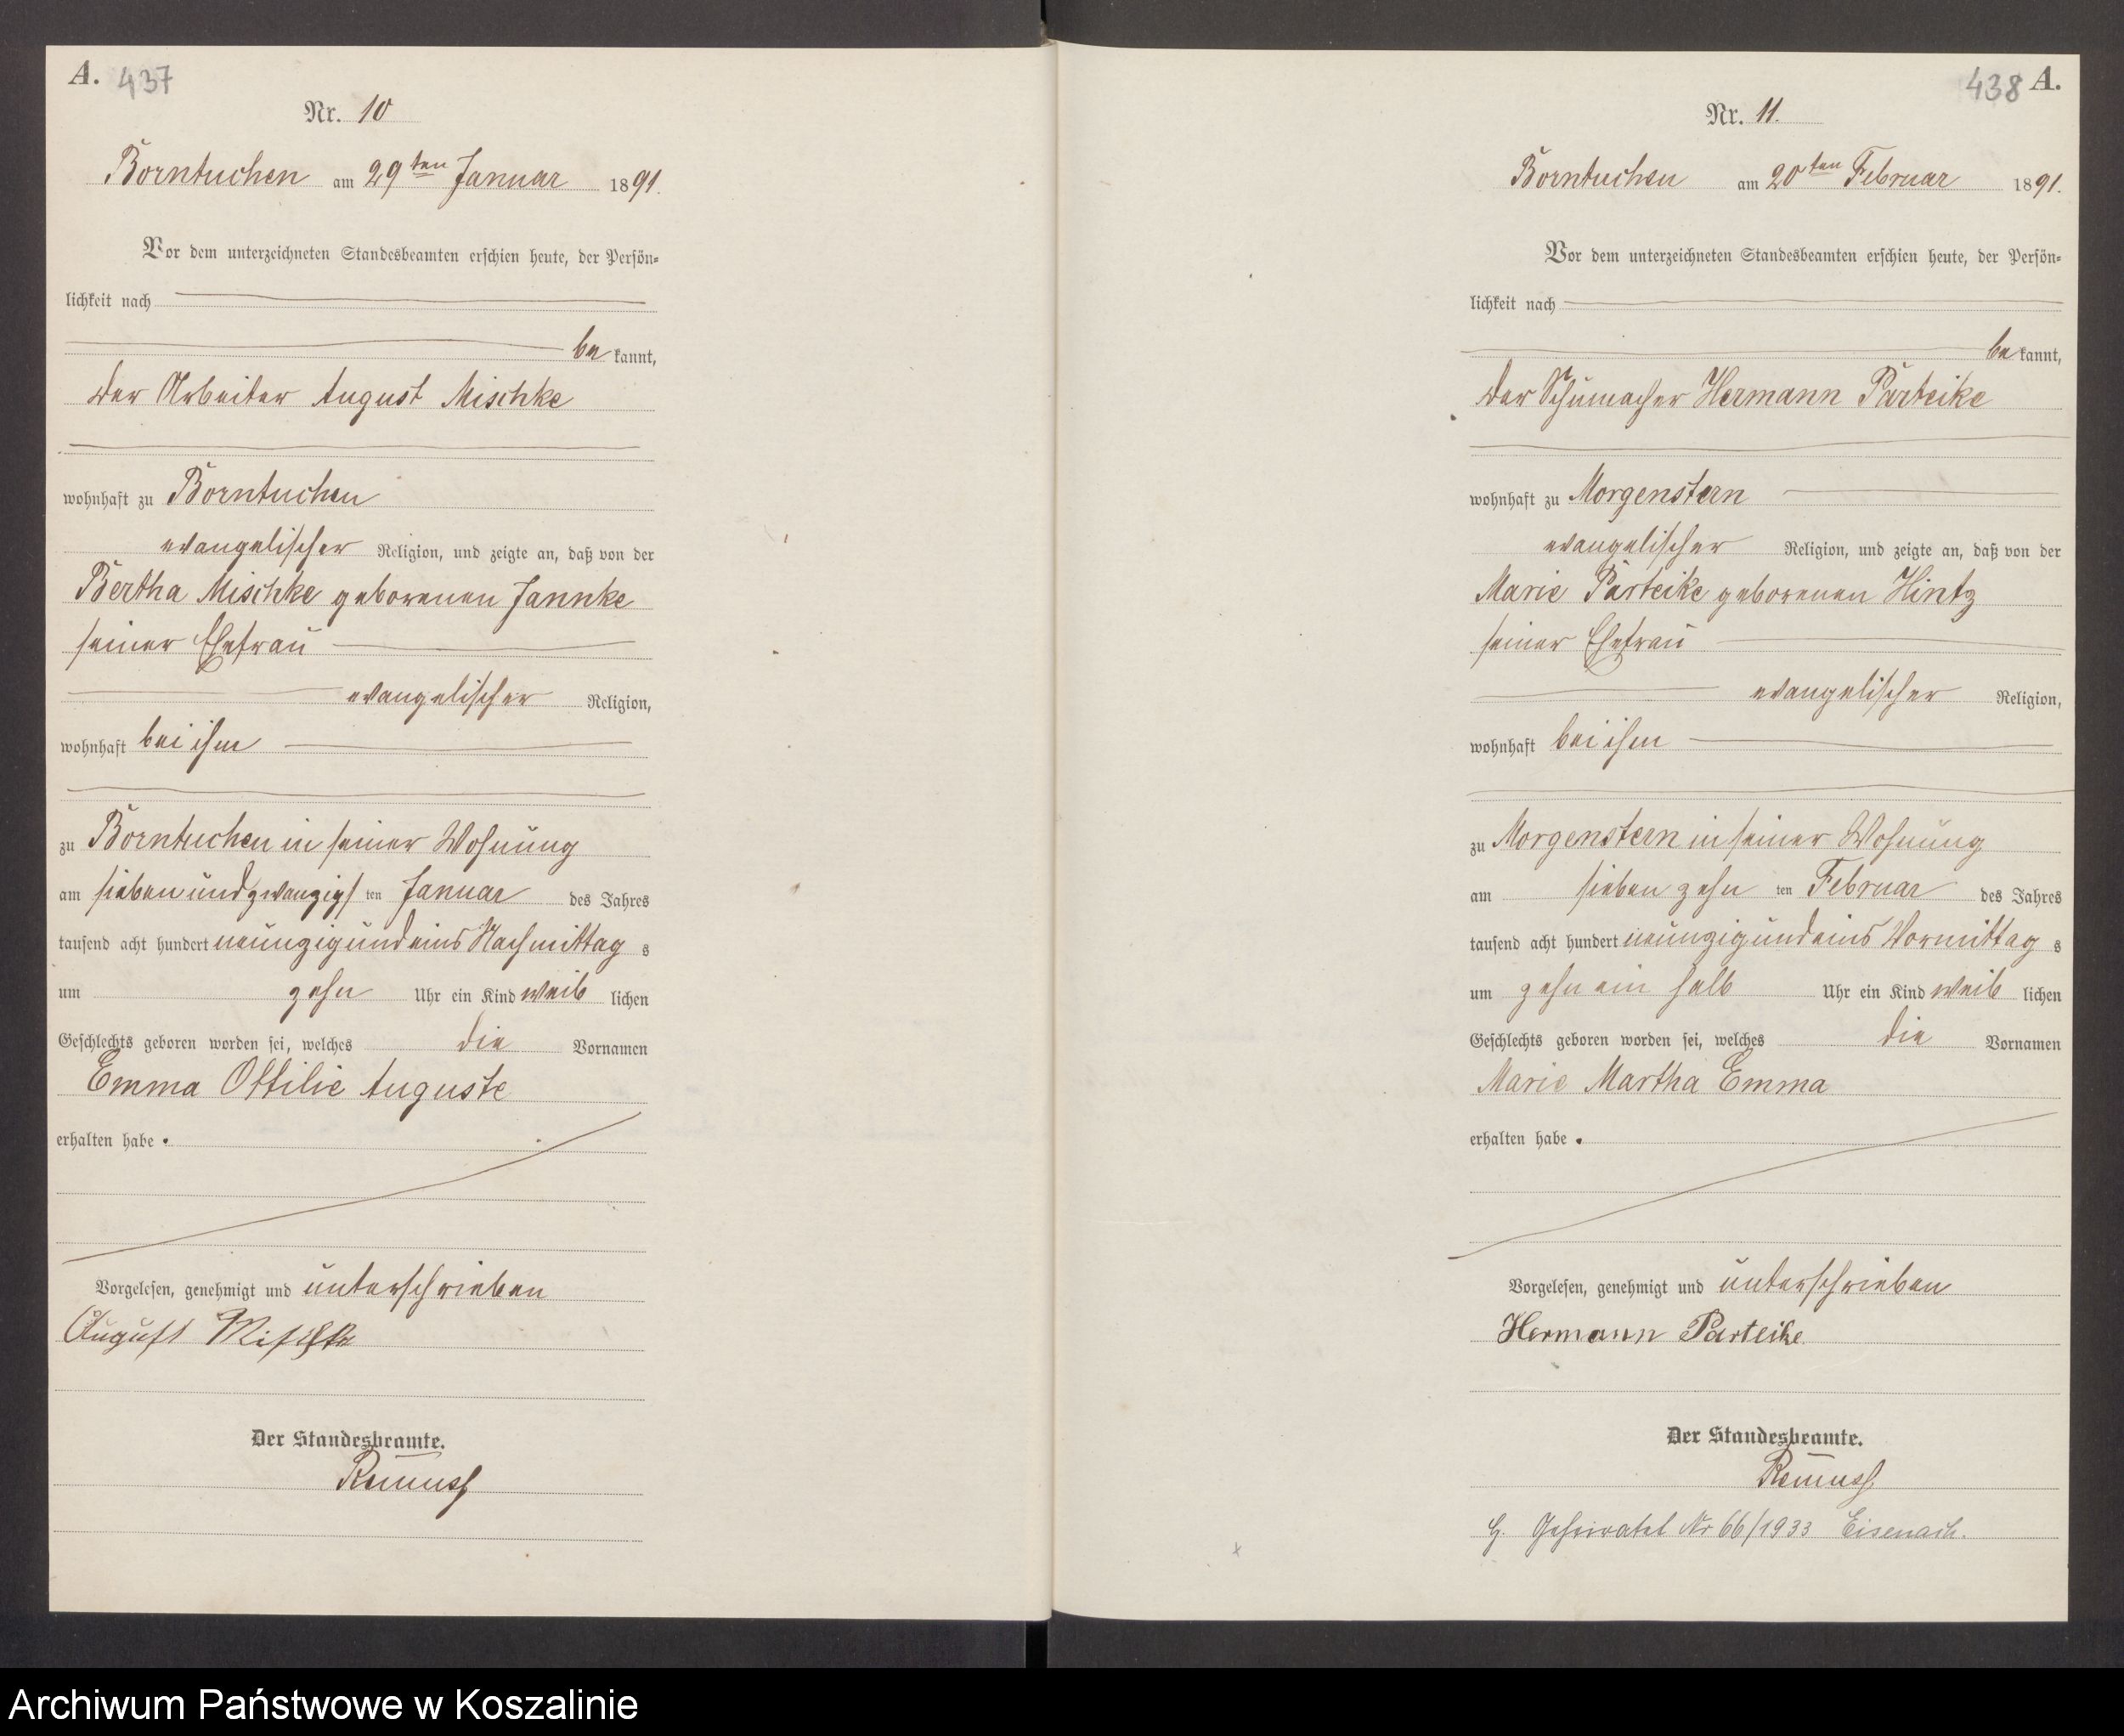 A. 437
Nr. 10
Borntuchen am 29ten Januar 1891.
Vor dem unterzeichneten Standesbeamten erschien heute, der Persön-
lichkeit nach
be kannt,
der Arbeiter August Mischke
wohnhaft zu Borntuchen
evangelischer Religion, und zeigte an, daß von der
Bertha Mischke geborenen Jannke
seiner Ehefrau
evangelischer Religion,
wohnhaft bei ihm
zu Borntuchen in seiner Wohnung
am siebenundzwanzigs ten Januar des Jahres
tausend acht hundert neunzigundeins Nachmittag s
um zehn Uhr ein Kind weib lichen
Geschlechts geboren worden sei, welches die Vornamen
Emma Ottilie Auguste
erhalten habe.
Vorgelesen, genehmigt und unterschrieben
August Mischke
Der Standesbeamte.
438 A.
Nr. 11.
Borntuchen am 20ten Februar 1891.
Vor dem unterzeichneten Standesbeamten erschien heute, der Persön-
lichkeit nach
be kannt,
der Schumacher Hermann Parteike
wohnhaft zu Morgenstern
evangelischer Religion, und zeigte an, daß von der
Marie Parteike geborenen Hintz
seiner Ehefrau
evangelischer Religion,
wohnhaft bei ihm
zu Morgenstern in seiner Wohnung
am sieben zehn ten Februar des Jahres
tausend acht hundert neunzigundeins Vormittag s
um zehn ein halb Uhr ein Kind weib lichen
Geschlechts geboren worden sei, welches die Vornamen
Marie Martha Emma
erhalten habe.
Vorgelesen, genehmigt und unterschrieben
Hermann Parteike
Der Standesbeamte.
Geheiratet Nr 66/1933 Eisenach.
Archiwum Państwowe w Koszalinie